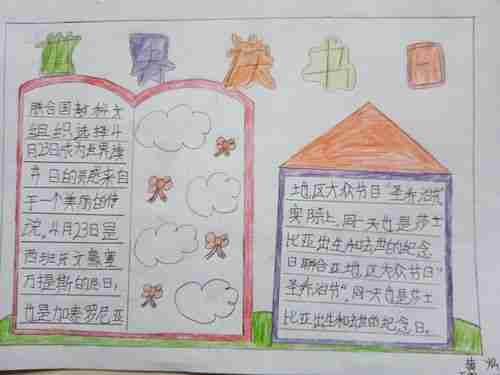 世界读书日
联合国教科文
组织选择4
月23日成为世界读
书日的灵感来自
于一个美丽的传
说。4月23日是
西班牙文豪塞
万提斯的忌日,
也是加泰罗尼亚
地区大众节日"圣乔治节"
实际上,同一天也是莎士
比亚出生和去世的纪念
日联合亚地区大众节日"
圣乔治节",同一天也是莎士
比亚出生和去世的纪念日。